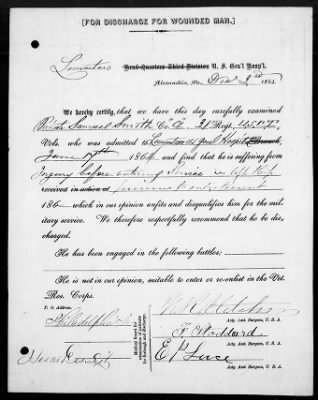 [FOR DISCHARGE FOR WOUNDED MAN.]
Head-Quarters Third Division U. S. Gen'l Hosp'l.
Alexandria, Va. 2nd 186
We hereby certify, that we have this day carefully examined
Samuel Smith Co A. 31 Regt. U.S.C.T.
Vols. who was admitted to Hosp'l Branch,
June 1864 and find that he is suffering from
Injury before entering Service left Hip
received in action at previous to enlistment
186 which in our opinion unfits and disqualifies him for the mi-
litary service. We therefore respectfully recommend that he be dis-
charged.
He has been engaged in the following battles:
He is not in our opinion, suitable to enter or re-enlist in the Vet.
Res. Corps.
P. O. Address.
Philadelphia
Acty. Asst. Surgeon, U. S. A.
F. Stoddard
Acty. Asst. Surgeon, U. S. A.
Acty. Asst. Surgeon, U. S. A.
Medical Board for
examination of patients
for furlough and discharge.